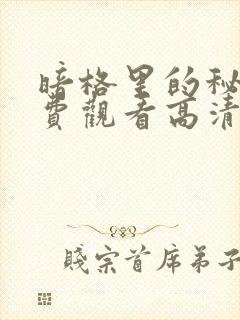 暗格里的秘
費觀看高清
賤宗首席弟子